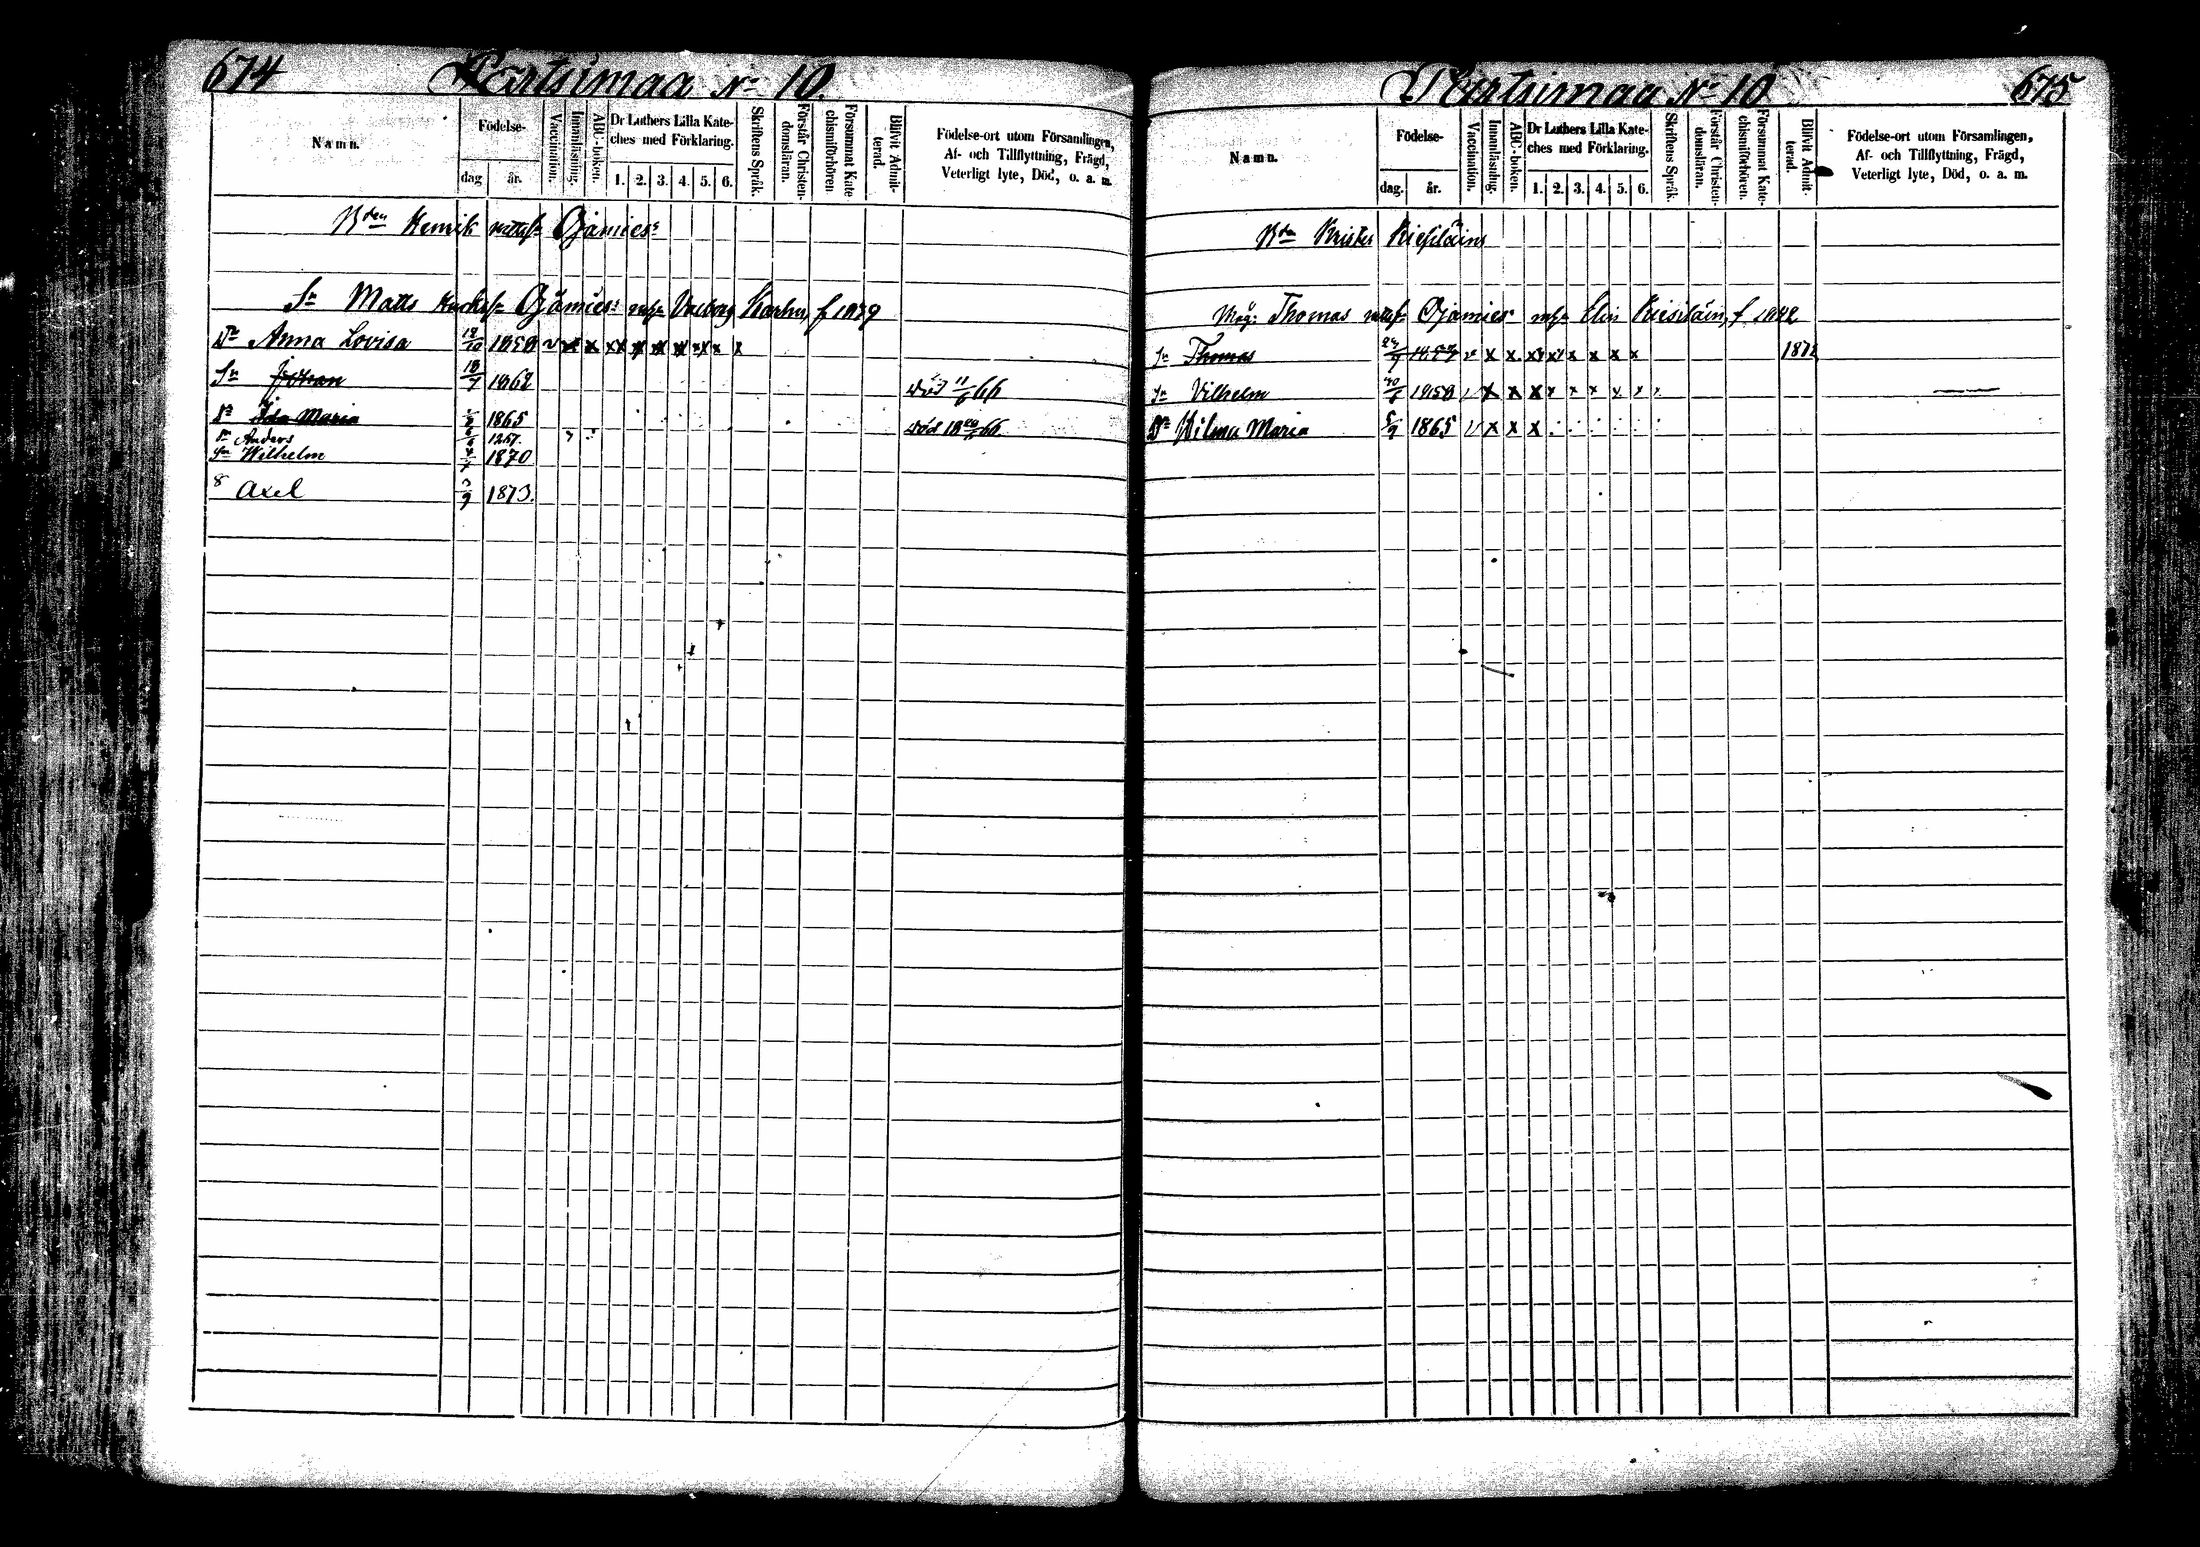 674
Pertsimaa No 10.
Namn.
Födelse-
dag
år.
Vaccination.
Innanläsning.
ABC-boken.
Dr Luthers Lilla Kate-
ches med Förklaring.
1. 2. 3. 4. 5. 6.
Skriftens Språk.
Förstår Christen-
domsläran.
Försummat Kate
chismiförhören
Blifvit Admit-
terad.
Födelse-ort utom Församlingen,
Af- och Tillflyttning, Frägd,
Veterligt lyte, Död, o. a. m.
Bden Henrik Ojämies:
Sn Matts Ojämies: Karhu, f
Dr Anna Lovisa 18/10 1858 v x x x x x x x x x x
Sn Johan 18/7 1862 Död 11/6 66
Dr Ida Maria 1865 Död 66.
Sn Anders 1867.
Sn Wilhelm 1870
S Axel 3/9 1873.
675
Pertsimaa No 10
Namn.
Födelse-
dag.
år.
Vaccination.
Innanläsning.
ABC-boken.
Dr Luthers Lilla Kate-
ches med Förklaring.
1. 2. 3. 4. 5. 6.
Skriftens Språk.
Förstår Christen-
domsläran.
Försummat Kate-
chismiförhören.
Blifvit Admit-
terad.
Födelse-ort utom Församlingen,
Af- och Tillflyttning, Frägd,
Veterligt lyte, Död, o. a. m.
Bden Krister Kiesiläins
Måg: Thomas Ojämies Elin Kiesiläin, f
Sn Thomas 1857 v x x x x x x x x 1872
Sn Vilhelm 1858 v x x x x x x x x
Dr Vilma Maria 5/9 1865 v x x x